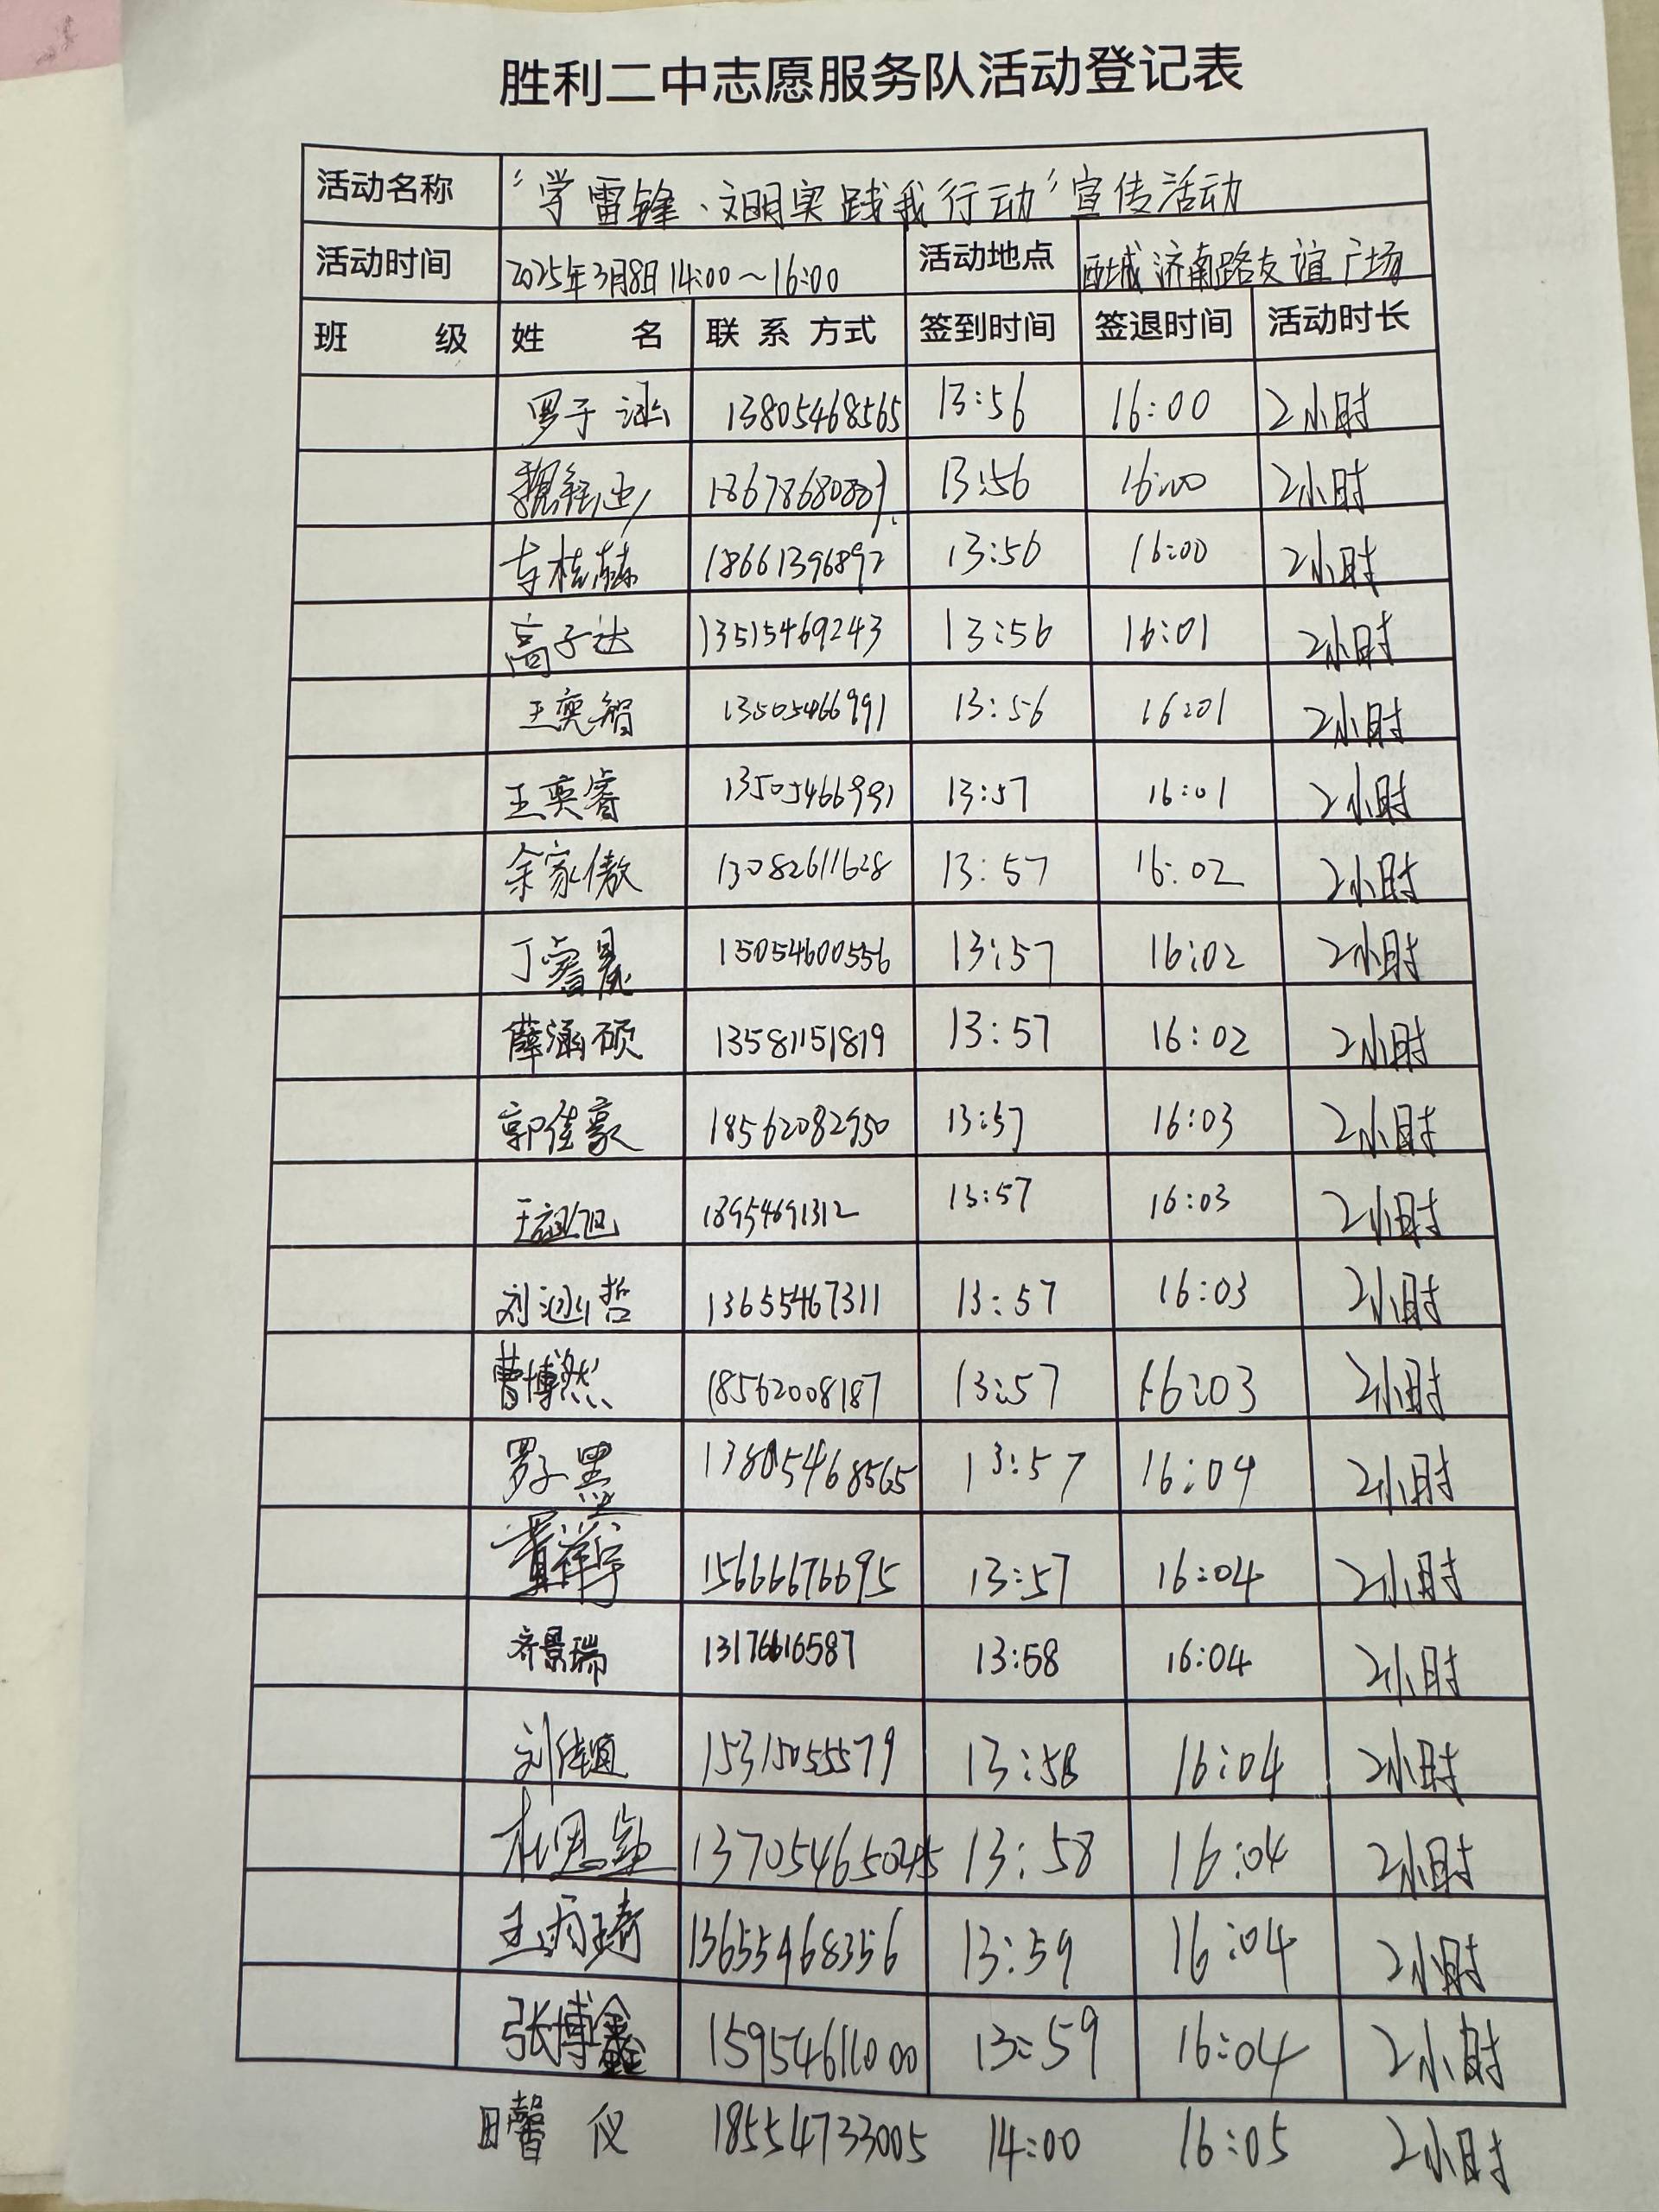 胜利二中志愿服务队活动登记表
活动名称 “学雷锋、文明实践我行动”宣传活动
活动时间 2025年3月8日 14:00~16:00 活动地点 西城济南路友谊广场
班 级 姓 名 联 系 方式 签到时间 签退时间 活动时长
罗子涵 13805468565 13:56 16:00 2小时
13:56 16:00 2小时
18661396892 13:56 16:00 2小时
高子达 13515469243 13:56 16:01 2小时
王奕智 13505466991 13:56 16:01 2小时
王奕睿 13505466991 13:57 16:01 2小时
余家傲 13082611628 13:57 16:02 2小时
丁睿晟 15054600556 13:57 16:02 2小时
薛涵硕 13581151819 13:57 16:02 2小时
郭佳豪 18562082950 13:57 16:03 2小时
18954691312 13:57 16:03 2小时
刘涵哲 13655467311 13:57 16:03 2小时
曹博然 18562008187 13:57 16:03 2小时
罗子墨 13805468565 13:57 16:04 2小时
15666676695 13:57 16:04 2小时
齐景瑞 13176616587 13:58 16:04 2小时
15315055579 13:58 16:04 2小时
13:58 16:04 2小时
王雨琦 13655468356 13:59 16:04 2小时
张博鑫 15954611000 13:59 16:04 2小时
馨仪 18554733005 14:00 16:05 2小时